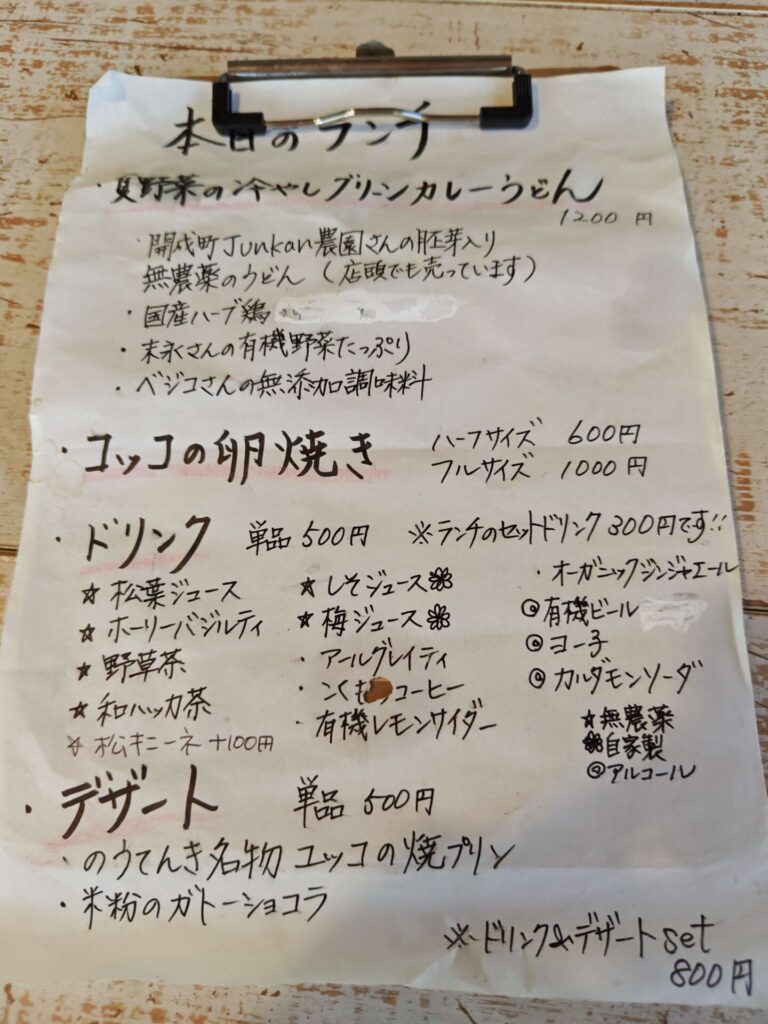 本日のランチ
・夏野菜の冷やしグリーンカレーうどん
1200 円
・開成町Junkan農園さんの胚芽入り
無農薬のうどん (店頭でも売っています)
・国産ハーブ鶏
・末永さんの有機野菜たっぷり
・ベジコさんの無添加調味料
・コッコの卵焼き
ハーフサイズ 600円
フルサイズ 1000円
・ドリンク 単品500円 ※ランチのセットドリンク300円です!!
☆松葉ジュース
☆ホーリーバジルティ
☆野草茶
☆和ハッカ茶
☆松キニーネ +100円
☆しそジュース❀
☆梅ジュース❀
・アールグレイティ
・こくもつコーヒー
・有機レモンサイダー
・オーガニックジンジャエール
◎有機ビール
◎ヨー子
◎カルダモンソーダ
☆無農薬
❀自家製
◎アルコール
・デザート 単品500円
・のうてんき名物コッコの焼プリン
・米粉のガトーショコラ
※ドリンク&デザートset
800円